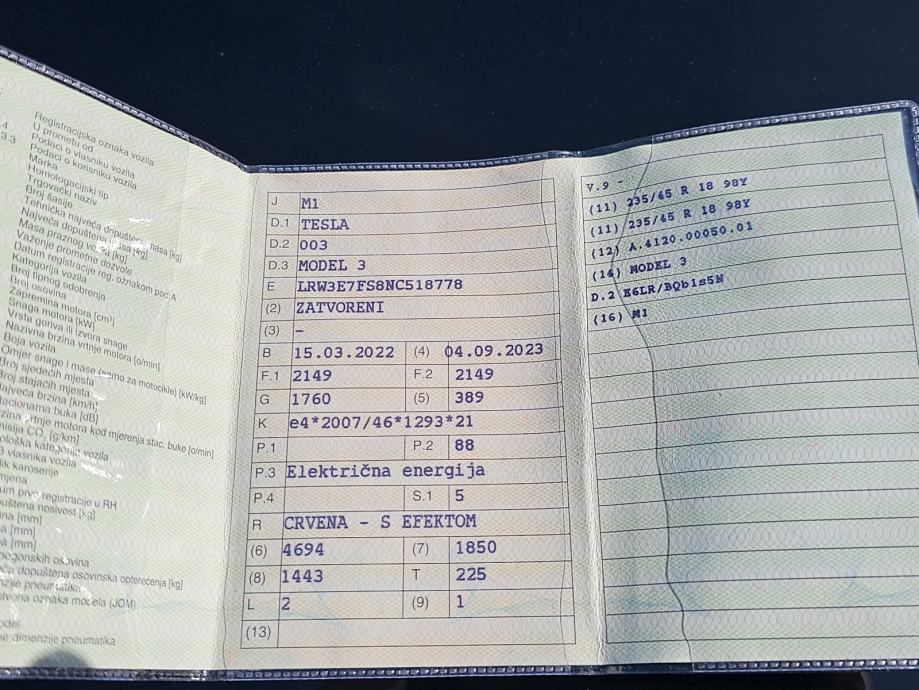 Registracijska oznaka vozila
U prometu od
Podaci o vlasniku vozila
Podaci o korisniku vozila
Marka
Homologacijski tip
Trgovački naziv
Broj šasije
Tehnička najveća dopuštena masa [kg]
Najveća dopuštena masa [kg]
Masa praznog vozila [kg]
Važenje prometne dozvole
Datum registracije reg. oznakom pod A
Kategorija vozila
Broj tipnog odobrenja
Broj osovina
Zapremina motora [cm³]
Snaga motora [kW]
Vrsta goriva ili izvora snage
Nazivna brzina vrtnje motora [o/min]
Boja vozila
Omjer snage i mase (samo za motocikle) [kW/kg]
Broj sjedećih mjesta
Broj stajaćih mjesta
brzina [km/h]
buka [dB]
vrtnje motora kod mjerenja stac. buke [o/min]
CO₂ [g/km]
kategorija vozila
vlasnika vozila
karoserije
prve registracije u RH
nosivost [kg]
[mm]
[mm]
[mm]
osovina
dopuštena osovinska opterećenja [kg]
pneumatika
oznaka modela (JOM)
dimenzije pneumatika
J M1
D.1 TESLA
D.2 003
D.3 MODEL 3
E LRW3E7FS8NC518778
(2) ZATVORENI
(3) –
B 15.03.2022 (4) 04.09.2023
F.1 2149 F.2 2149
G 1760 (5) 389
K e4*2007/46*1293*21
P.1 P.2 88
P.3 Električna energija
P.4 S.1 5
R CRVENA - S EFEKTOM
(6) 4694 (7) 1850
(8) 1443 T 225
L 2 (9) 1
(13)
V.9 -
(11) 235/45 R 18 98Y
(11) 235/45 R 18 98Y
(12) A.4120.00050.01
(14) MODEL 3
D.2 E6LR/BQb1s5N
(16) M1